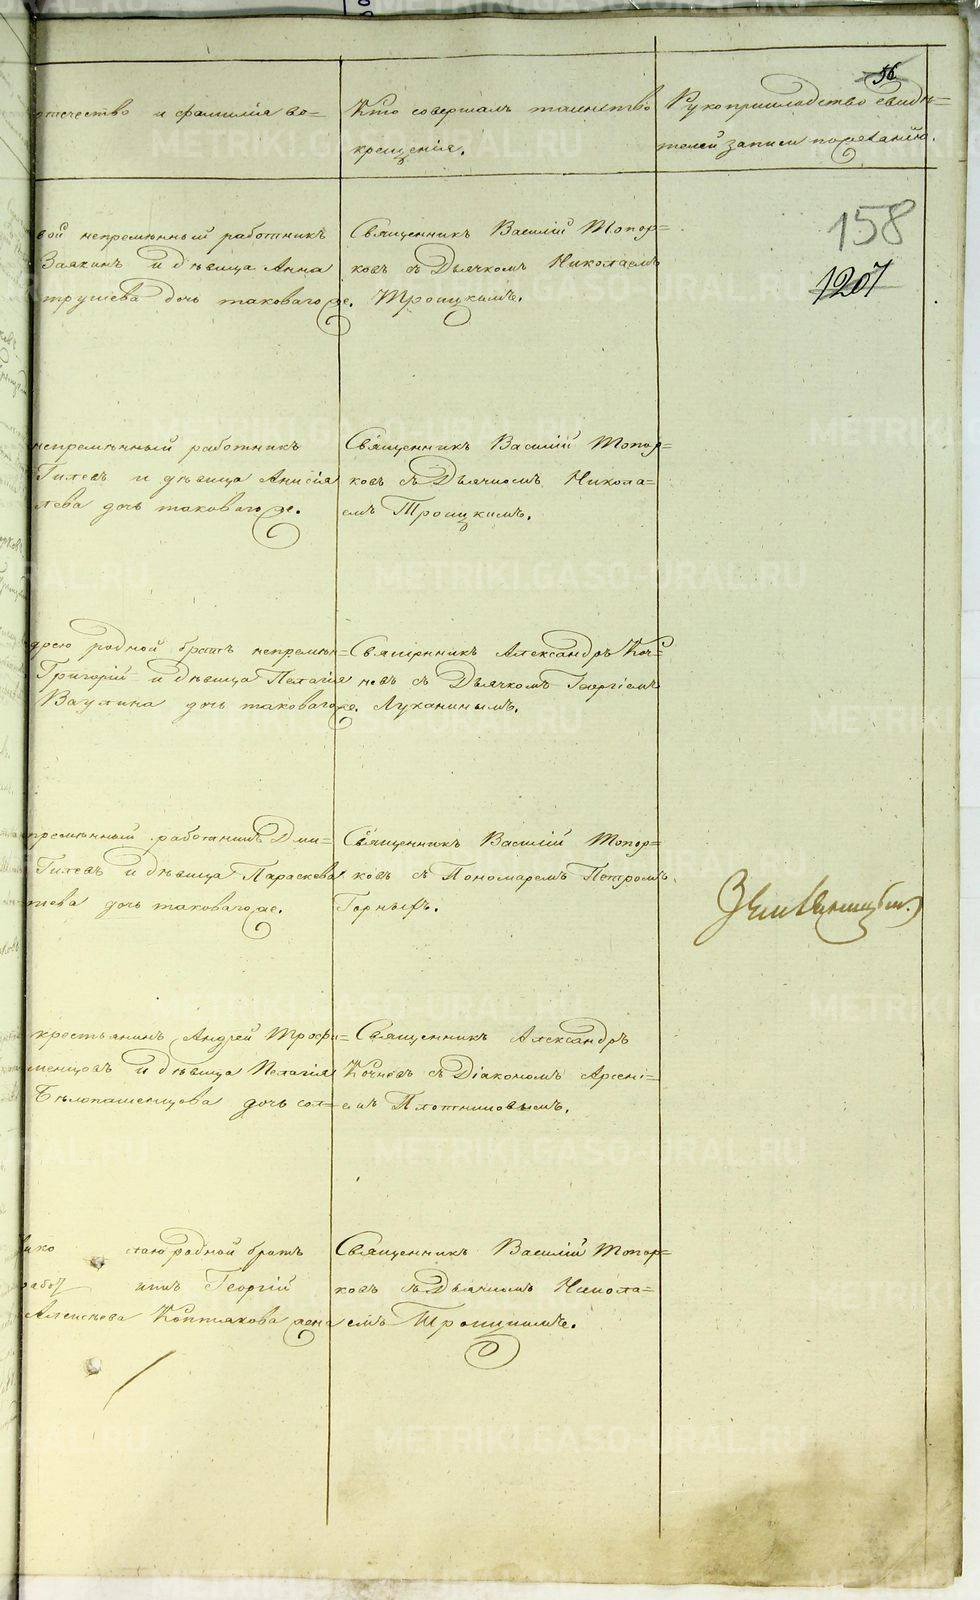 56
отчество и фамилія во=
Кто совершалъ таинство
Рукоприкладство свидѣ=
крещенія.
телей записи по желанію.
158
1207
вой непремѣнный работникъ
Заякинъ и дѣвица Анна
трушева дочь таковаго же.
Священникъ Василій Топор=
ковъ съ Дьячкомъ Николаемъ
Троицкимъ.
непремѣнный работникъ
Гилевъ и дѣвица Анисія
лева дочь таковаго же.
Священникъ Василій Топор=
ковъ съ Дьячкомъ Никола=
емъ Троицкимъ.
дрею родной братъ непремѣн=
Григорій и дѣвица Пелагія
Ваулина дочь таковаго же.
Священникъ Александръ Коч=
невъ съ Дьячкомъ Георгіемъ
Луканинымъ.
премѣнный работникъ Дми=
Гилевъ и дѣвица Параскева
шева дочь таковаго же.
Священникъ Василій Топор=
ковъ съ Пономаремъ Петромъ
Горныхъ.
крестьянинъ Андрей Трофи=
менцовъ и дѣвица Пелагія
Бѣлопашенцова дочь сол=
Священникъ Александръ
Кочневъ съ Діакономъ Арсені=
емъ Плотниковымъ.
родной братъ
Георгій
Алексѣева Коптякова жена
Священникъ Василій Топор=
ковъ съ Дьячкомъ Никола=
емъ Троицкимъ.
METRIKI.GASO-URAL.RU